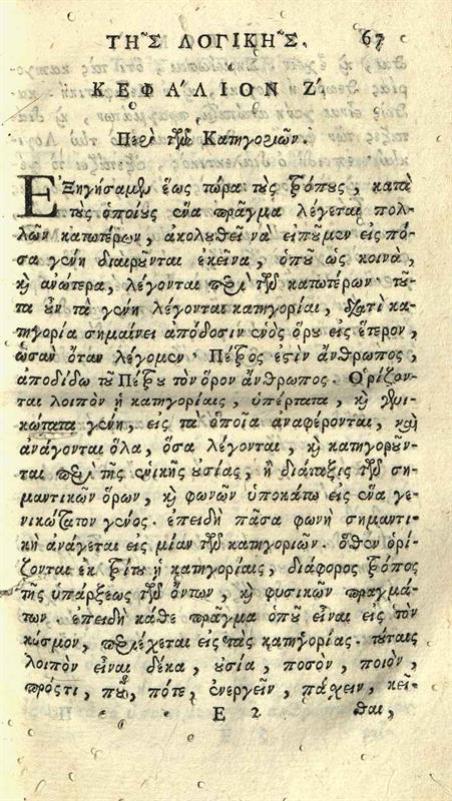 ΤΗ͂Σ ΛΟΓΙΚΗ͂Σ. 67
ΚΕΦΑ΄ΛΙΟΝ Ζ΄
Περὶ τῶν Κατηγοριῶν.
ἘΞηγήσαμεν ἕως τώρα τοὺς τρόπους, κατὰ
τοὺς ὁποίους ἕνα πρᾶγμα λέγεται πολ-
λῶν κατωτέρων, ἀκολουθεῖ νὰ εἰποῦμεν εἰς πό-
σα γένη διαιροῦνται ἐκεῖνα, ὁποῦ ὡς κοινὰ,
καὶ ἀνώτερα, λέγονται περὶ τῶν κατωτέρων· ταῦ-
τα οὖν τὰ γένη λέγονται κατηγορίαι, διατὶ κα-
τηγορία σημαίνει ἀπόδοσιν ἑνὸς ὅρου εἰς ἕτερον,
ὡσὰν ὅταν λέγομεν· Πέτρος ἐστὶν ἄνθρωπος,
ἀποδίδω τοῦ Πέτρου τὸν ὅρον ἄνθρωπος. Ὁρίζον-
ται λοιπὸν ἡ κατηγορίαις, ὑπέρτατα, καὶ γενι-
κώτατα γένη, εἰς τὰ ὁποῖα ἀναφέρονται, καὶ
ἀνάγονται ὅλα, ὅσα λέγονται, καὶ κατηγοροῦν-
ται περὶ τῆς ἑνικῆς οὐσίας, ἢ διάταξις τῶν ση-
μαντικῶν ὅρων, καὶ φωνῶν ὑποκάτω εἰς ἕνα γε-
νικώτατον γένος. ἐπειδὴ πᾶσα φωνὴ σημαντι-
κὴ ἀνάγεται εἰς μίαν τῶν κατηγοριῶν. ὅθεν ὁρί-
ζονται ἐκ τρίτου ἡ κατηγορίαις, διάφορος τρόπος
τῆς ὑπάρξεως τῶν ὄντων, καὶ φυσικῶν πραγμά-
των. ἐπειδὴ κάθε πρᾶγμα ὁποῦ εἶναι εἰς τὸν
κόσμον, περιέχεται εἰς τὰς κατηγορίας. τούταις
λοιπὸν εἶναι δέκα, οὐσία, ποσὸν, ποιὸν,
πρόςτι, ποῦ, πότε, ἐνεργεῖν, πάσχειν, κεῖ-
Ε 2 σθαι,